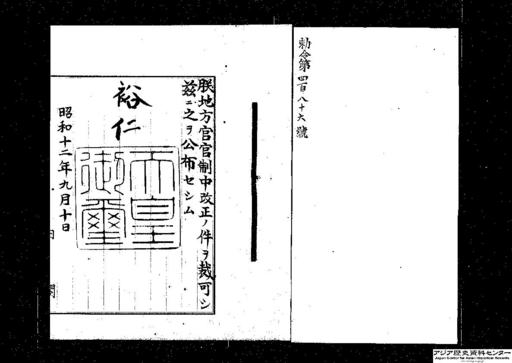 勅令第四百八十六號
朕地方官官制中改正ノ件ヲ裁可シ
茲ニ之ヲ公布セシム
裕仁
天皇御璽
昭和十二年九月十日
内閣
アジア歴史資料センター
Japan Center for Asian Historical Records